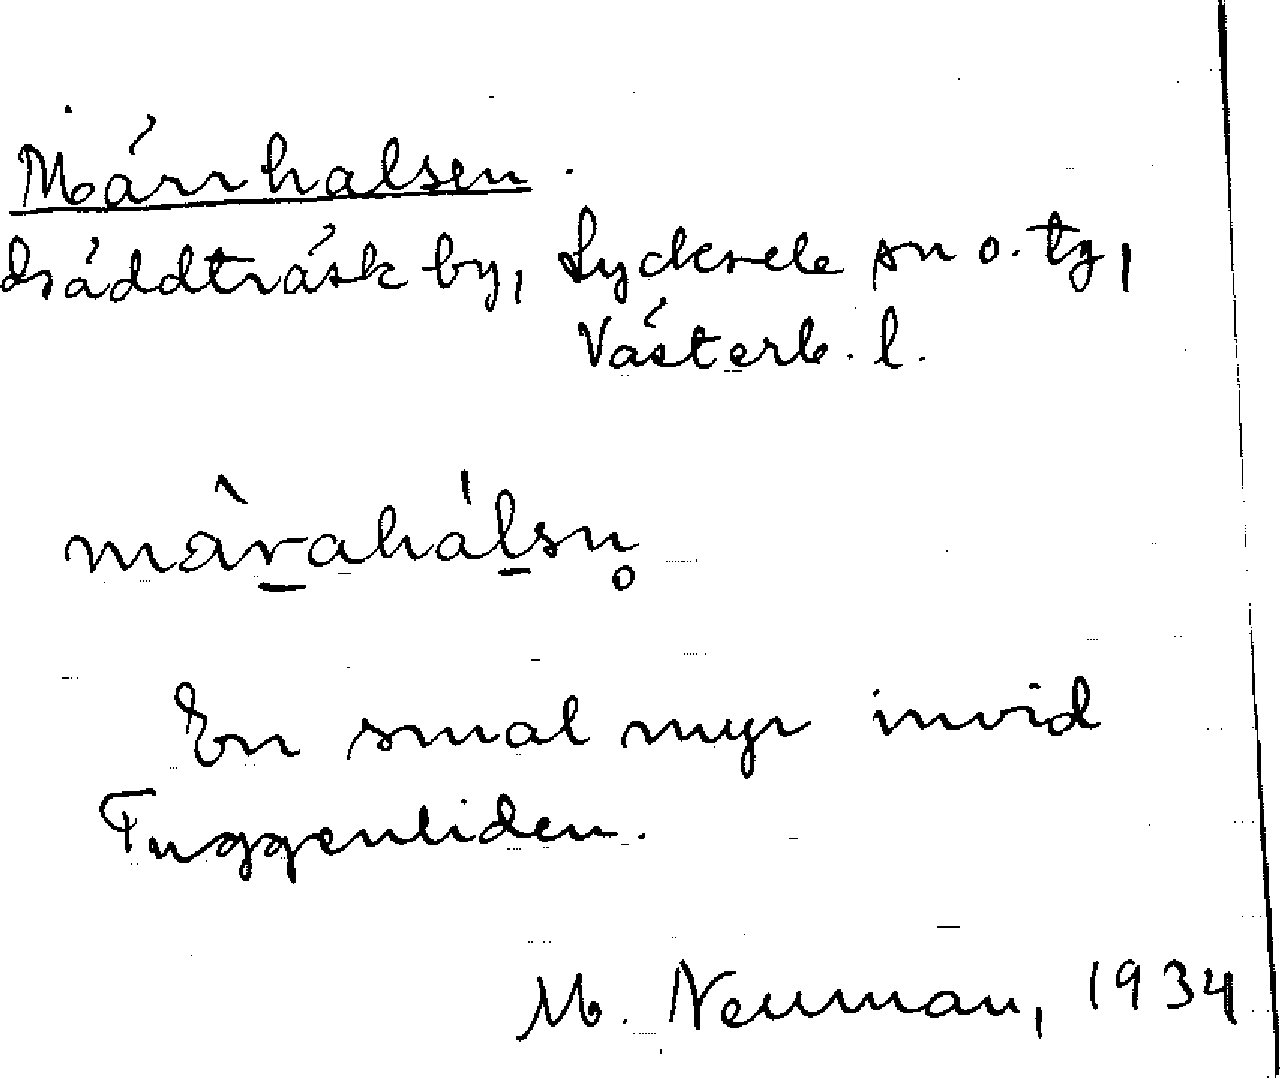 Märrhalsen.
Bräddträsk by, Lycksele sn o. tg,
Västerb. l.
màr̲ahál̲sn̥
En smal myr invid
Tuggenliden.
M. Neuman, 1934